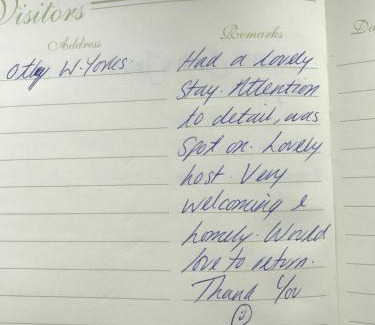 Visitors
Address
Remarks
Do
Otley W. Yorks.
Had a lovely
stay. Attention
to detail, was
spot on. Lovely
host. Very
welcoming &
homely. Would
love to return.
Thank You